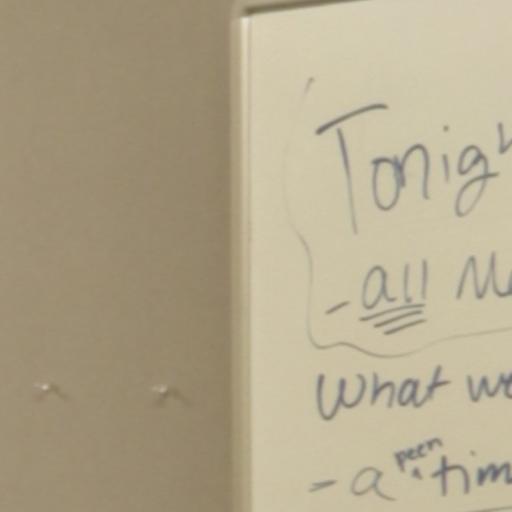 Tonigh
- all Me
What we
- a peen tim